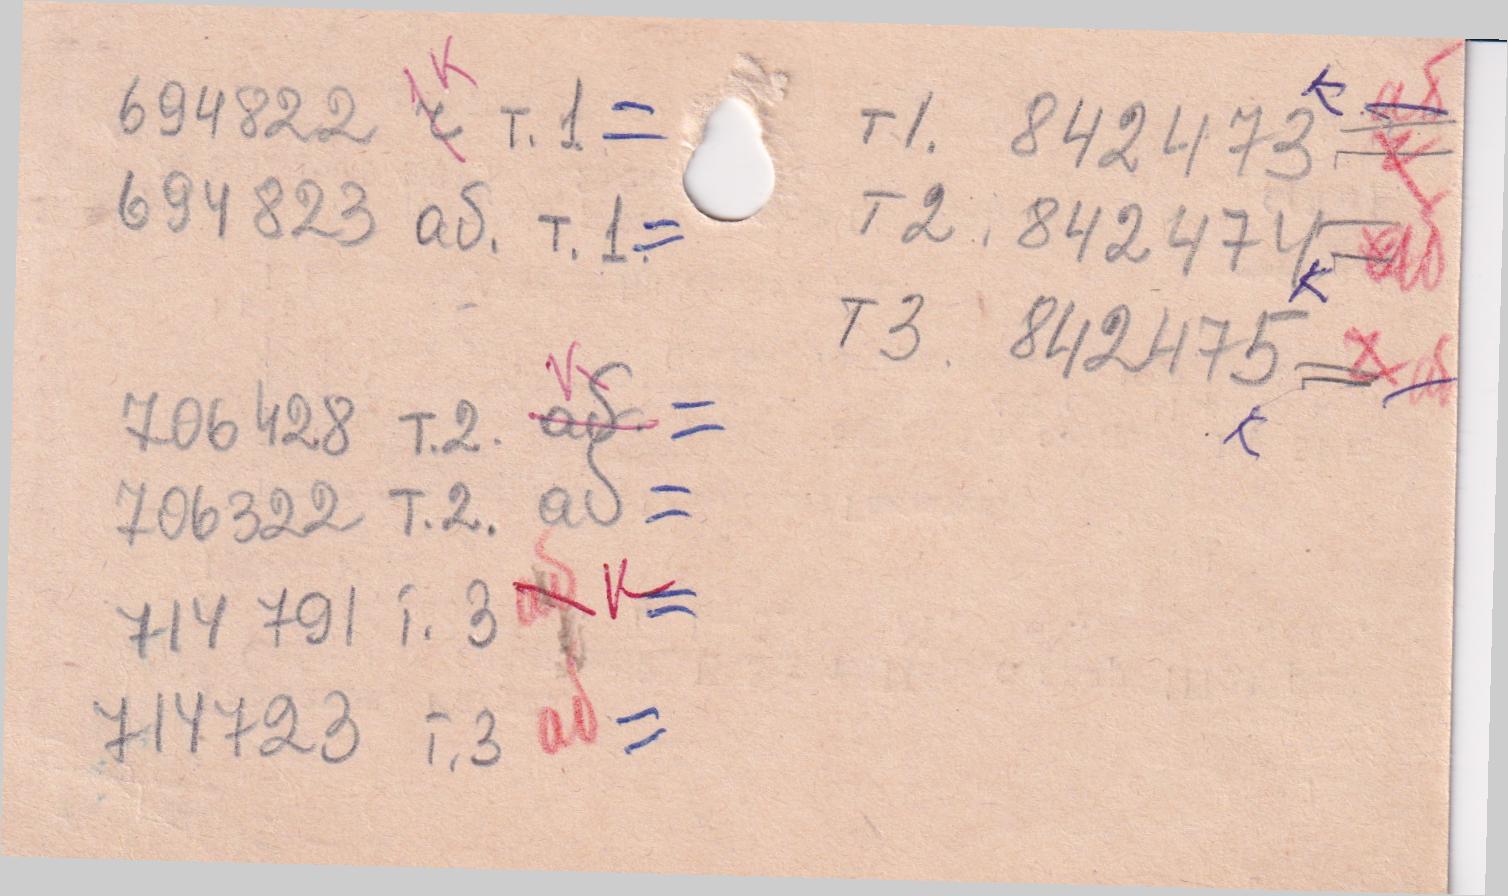 694822 к т.1 =
694823 аб. т.1. =
706428 т.2. аб. к =
706322 т.2. аб =
714791 т. 3 аб к =
714723 т.3 аб =
т1. 842473 к = аб
т2. 842474 к = аб
т3. 842475 к = аб